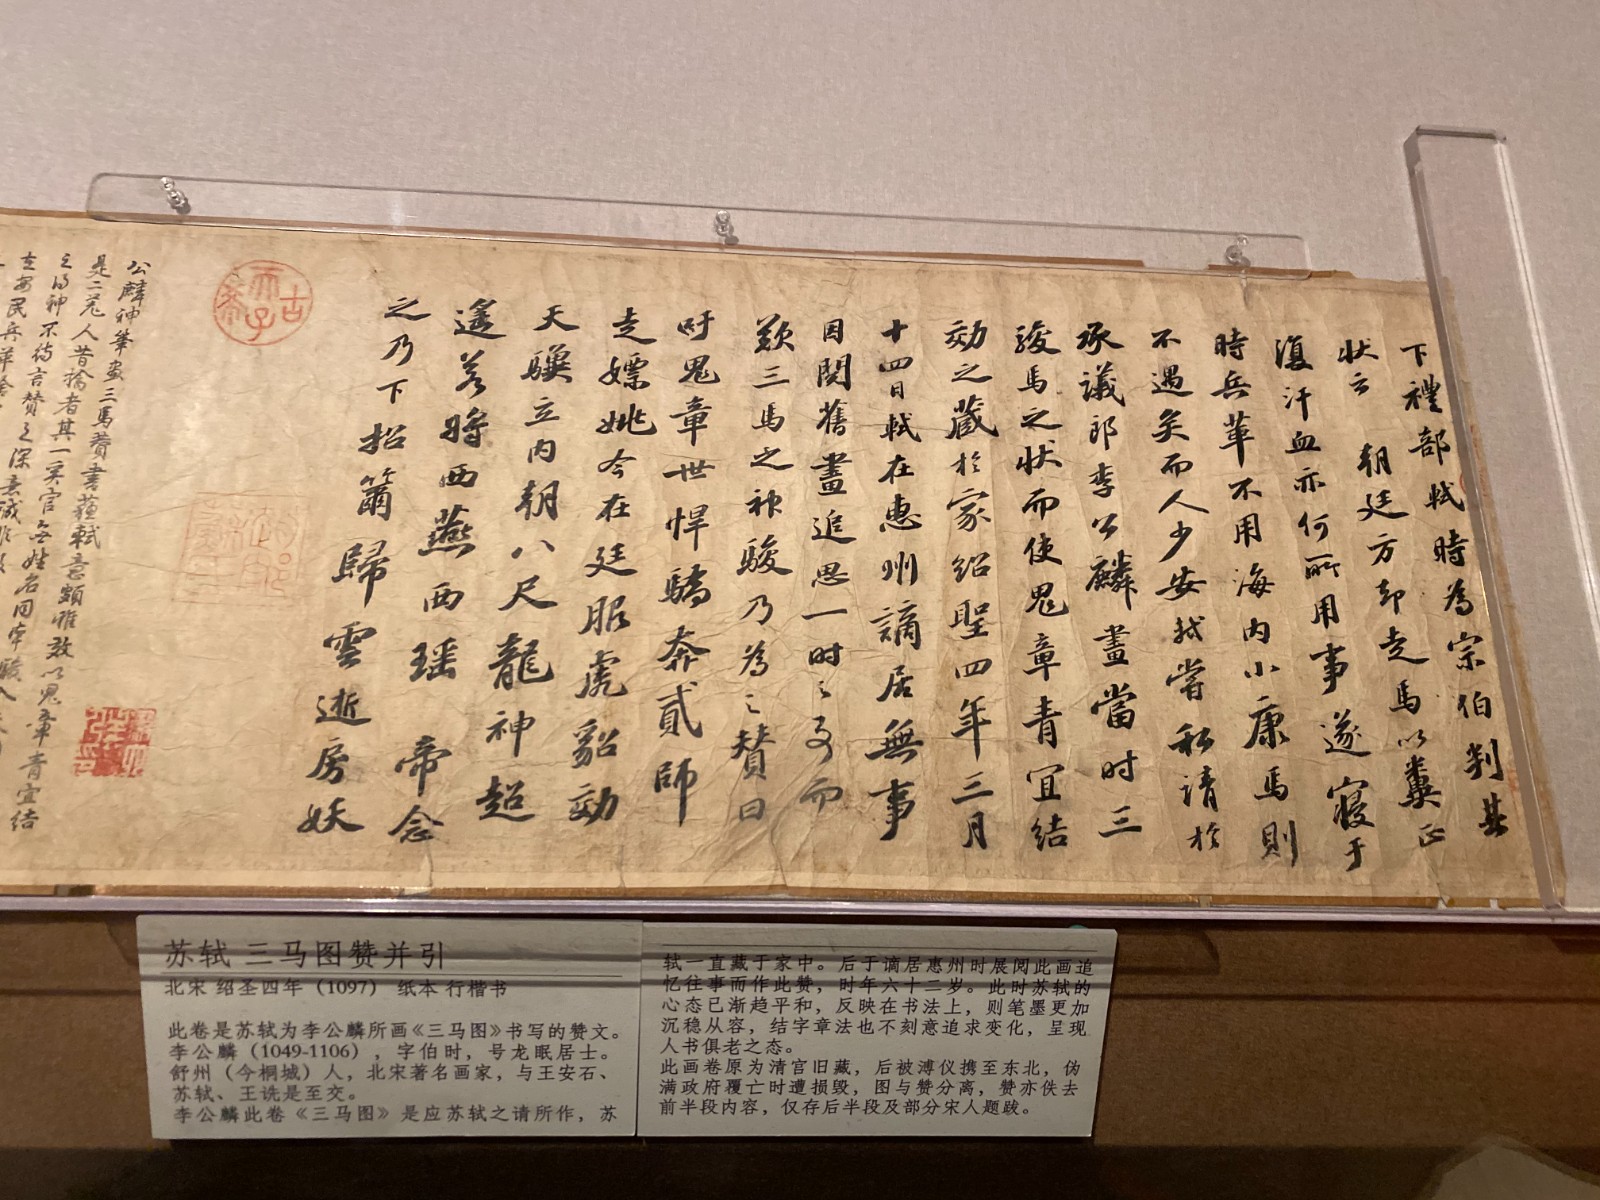 下禮部軾時為宗伯判其
狀云朝廷方却走馬以糞正
復汗血亦何所用事遂寢于
時兵革不用海內小康馬則
不遇矣而人少安軾嘗私請於
承議郎李公麟畫當时三
駿馬之狀而使鬼章青宜結
効之藏於家紹聖四年三月
十四日軾在惠州謫居無事
因閱舊畫追思一時之事而
歎三馬之神駿乃為之贊曰
吁鬼章世悍驕奔貳師
走嫖姚今在廷服虎貂効
天驥立內朝八尺龍神超
遙若將西燕西瑶帝念
之乃下招籋歸雲逝房妖
公麟神筆畫三馬贊書蘓軾意顯唯效以鬼章青宜結
是二
苏轼 三马图赞并引
北宋 绍圣四年（1097） 纸本 行楷书
此卷是苏轼为李公麟所画《三马图》书写的赞文。
李公麟（1049-1106），字伯时，号龙眠居士。
舒州（今桐城）人，北宋著名画家，与王安石、
苏轼、王诜是至交。
李公麟此卷《三马图》是应苏轼之请所作，苏
轼一直藏于家中。后于谪居惠州时展阅此画追
忆往事而作此赞，时年六十二岁。此时苏轼的
心态已渐趋平和，反映在书法上，则笔墨更加
沉稳从容，结字章法也不刻意追求变化，呈现
人书俱老之态。
此画卷原为清宫旧藏，后被溥仪携至东北，伪
满政府覆亡时遭损毁，图与赞分离，赞亦佚去
前半段内容，仅存后半段及部分宋人题跋。